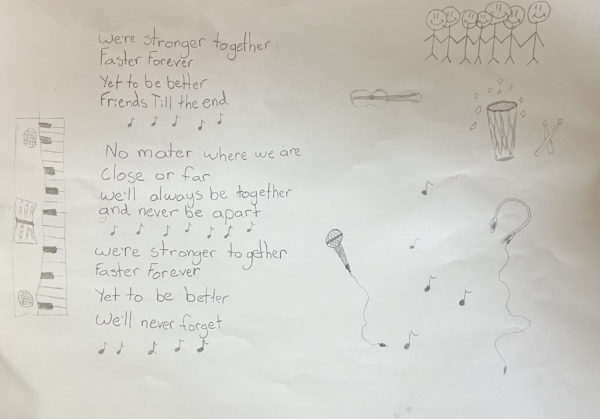 We're stronger together
Faster Forever
Yet to be better
Friends Till the end
No mater where we are
Close or far
We'll always be together
and never be apart
We're stronger together
Faster Forever
Yet to be better
We'll never forget